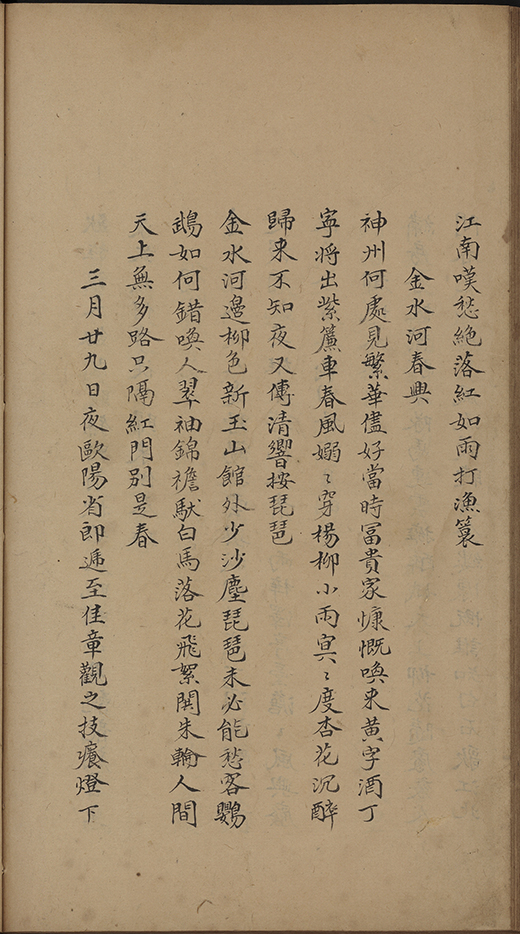 江南嘆愁絶落紅如雨打漁簑
金水河春興
神州何處見繁華儘好當時冨貴家慷慨喚来黄字酒丁
寧将出紫簾車春風嫋〻穿楊柳小雨㝠〻度杏花沉醉
歸来不知夜又傳清響按琵琶
金水河邉柳色新玉山館外少沙塵琵琶未必能愁客鸚
鵡如何錯喚人翠袖錦襜馱白馬落花飛絮閙朱輪人間
天上無多路只隔紅門别是春
三月廿九日夜歐陽省郎遞至佳章觀之技癢燈下